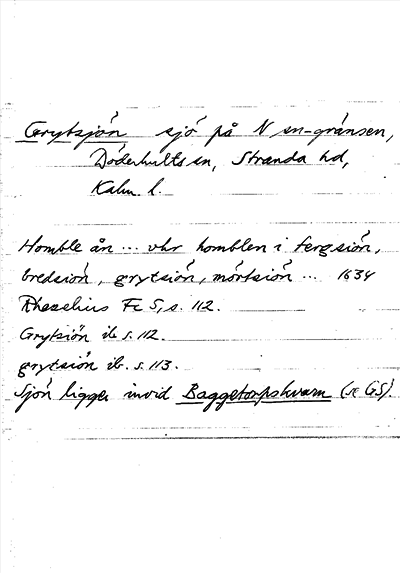 Grytsjön sjö på N sn-gränsen,
Döderhults sn, Stranda hd,
Kalm l.
Homble ån ... vhr homblen i fergsiön,
bredsiön, grytsiön, mörtsiön ... 1634
Rhezelius Fc 5, s. 112.
Grytsiön ib s. 112.
grytsiön ib. s. 113.
Sjön ligger invid Baggetorpskvarn (se GS).